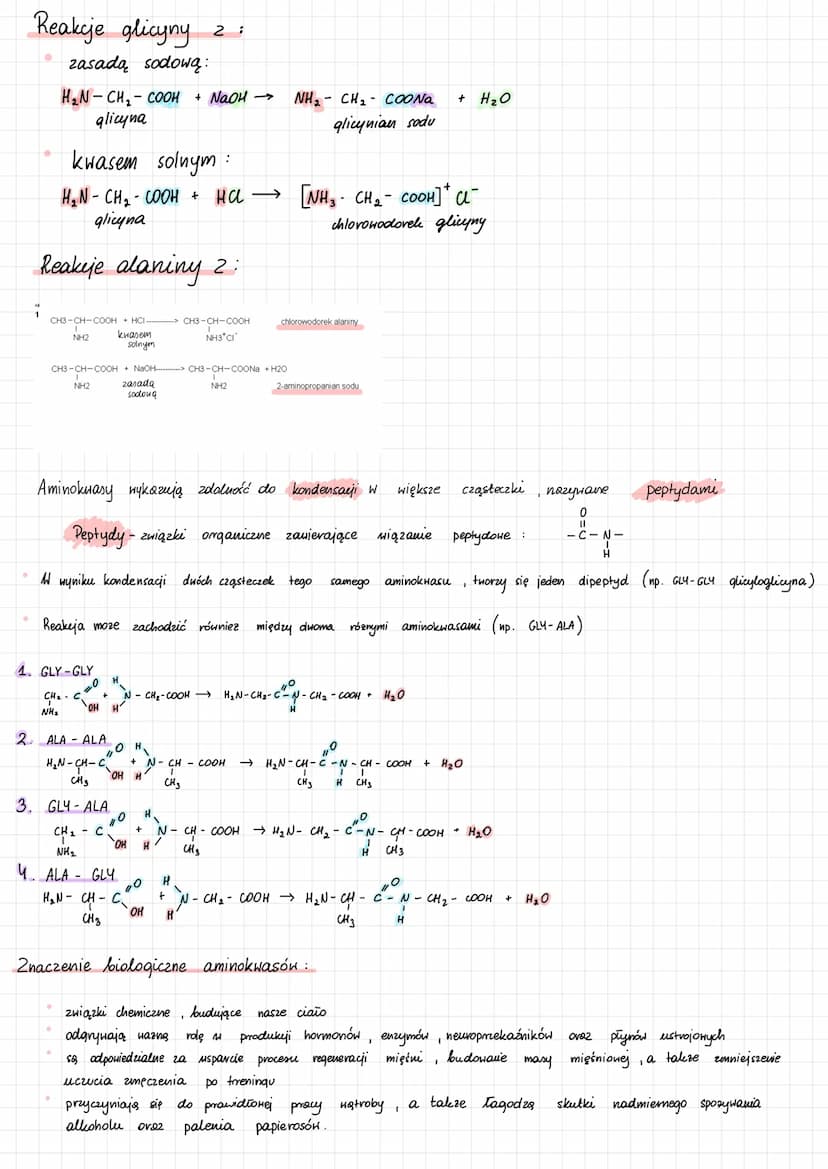 Reakcje glicyny z :
zasadą sodową:
H₂N – CH₂ – COOH + NaOH → NH₂ – CH₂ - COONa + H₂O
glicyna glicynian sodu
kwasem solnym :
H₂N - CH₂ - COOH + HCl → [NH₃ - CH₂ - COOH]⁺ Cl⁻
glicyna chlorowodorek glicyny
Reakcje alaniny z :
1
CH3-CH-COOH + HCl → CH3-CH-COOH chlorowodorek alaniny
NH2 kwasem NH3⁺Cl⁻
solnym
CH3-CH-COOH + NaOH → CH3-CH-COONa + H2O
NH2 zasadą NH2 2-aminopropanian sodu
sodową
Aminokwasy wykazują zdolność do kondensacji w większe cząsteczki , nazywane peptydami
O
Peptydy - związki organiczne zawierające wiązanie peptydowe : – C – N –
H
W wyniku kondensacji dwóch cząsteczek tego samego aminokwasu , tworzy się jeden dipeptyd (np. GLY-GLY glicyloglicyna)
Reakcja moze zachodzić również między dwoma różnymi aminokwasami (np. GLY-ALA)
1. GLY-GLY
O H O
CH₂ - C + N - CH₂-COOH → H₂N-CH₂-C-N-CH₂-COOH + H₂O
NH₂ OH H H
2. ALA - ALA
O H O
H₂N-CH-C + N - CH - COOH → H₂N-CH-C-N-CH-COOH + H₂O
CH₃ OH H CH₃ CH₃ H CH₃
3. GLY - ALA
O H O
CH₂ - C + N - CH - COOH → H₂N - CH₂ - C-N- CH - COOH + H₂O
NH₂ OH H CH₃ H CH₃
4. ALA - GLY
O H O
H₂N - CH - C + N - CH₂ - COOH → H₂N - CH - C - N - CH₂ - COOH + H₂O
CH₃ OH H CH₃ H
Znaczenie biologiczne aminokwasów :
związki chemiczne , budujące nasze ciało
odgrywają ważną rolę w produkcji hormonów , enzymów , neuroprzekaźników oraz płynów ustrojowych
są odpowiedzialne za wsparcie procesu regeneracji mięśni , budowanie masy mięśniowej , a także zmniejszenie
uczucia zmęczenia po treningu
przyczyniają się do prawidłowej pracy wątroby , a także łagodzą skutki nadmiernego spożywania
alkoholu oraz palenia papierosów .